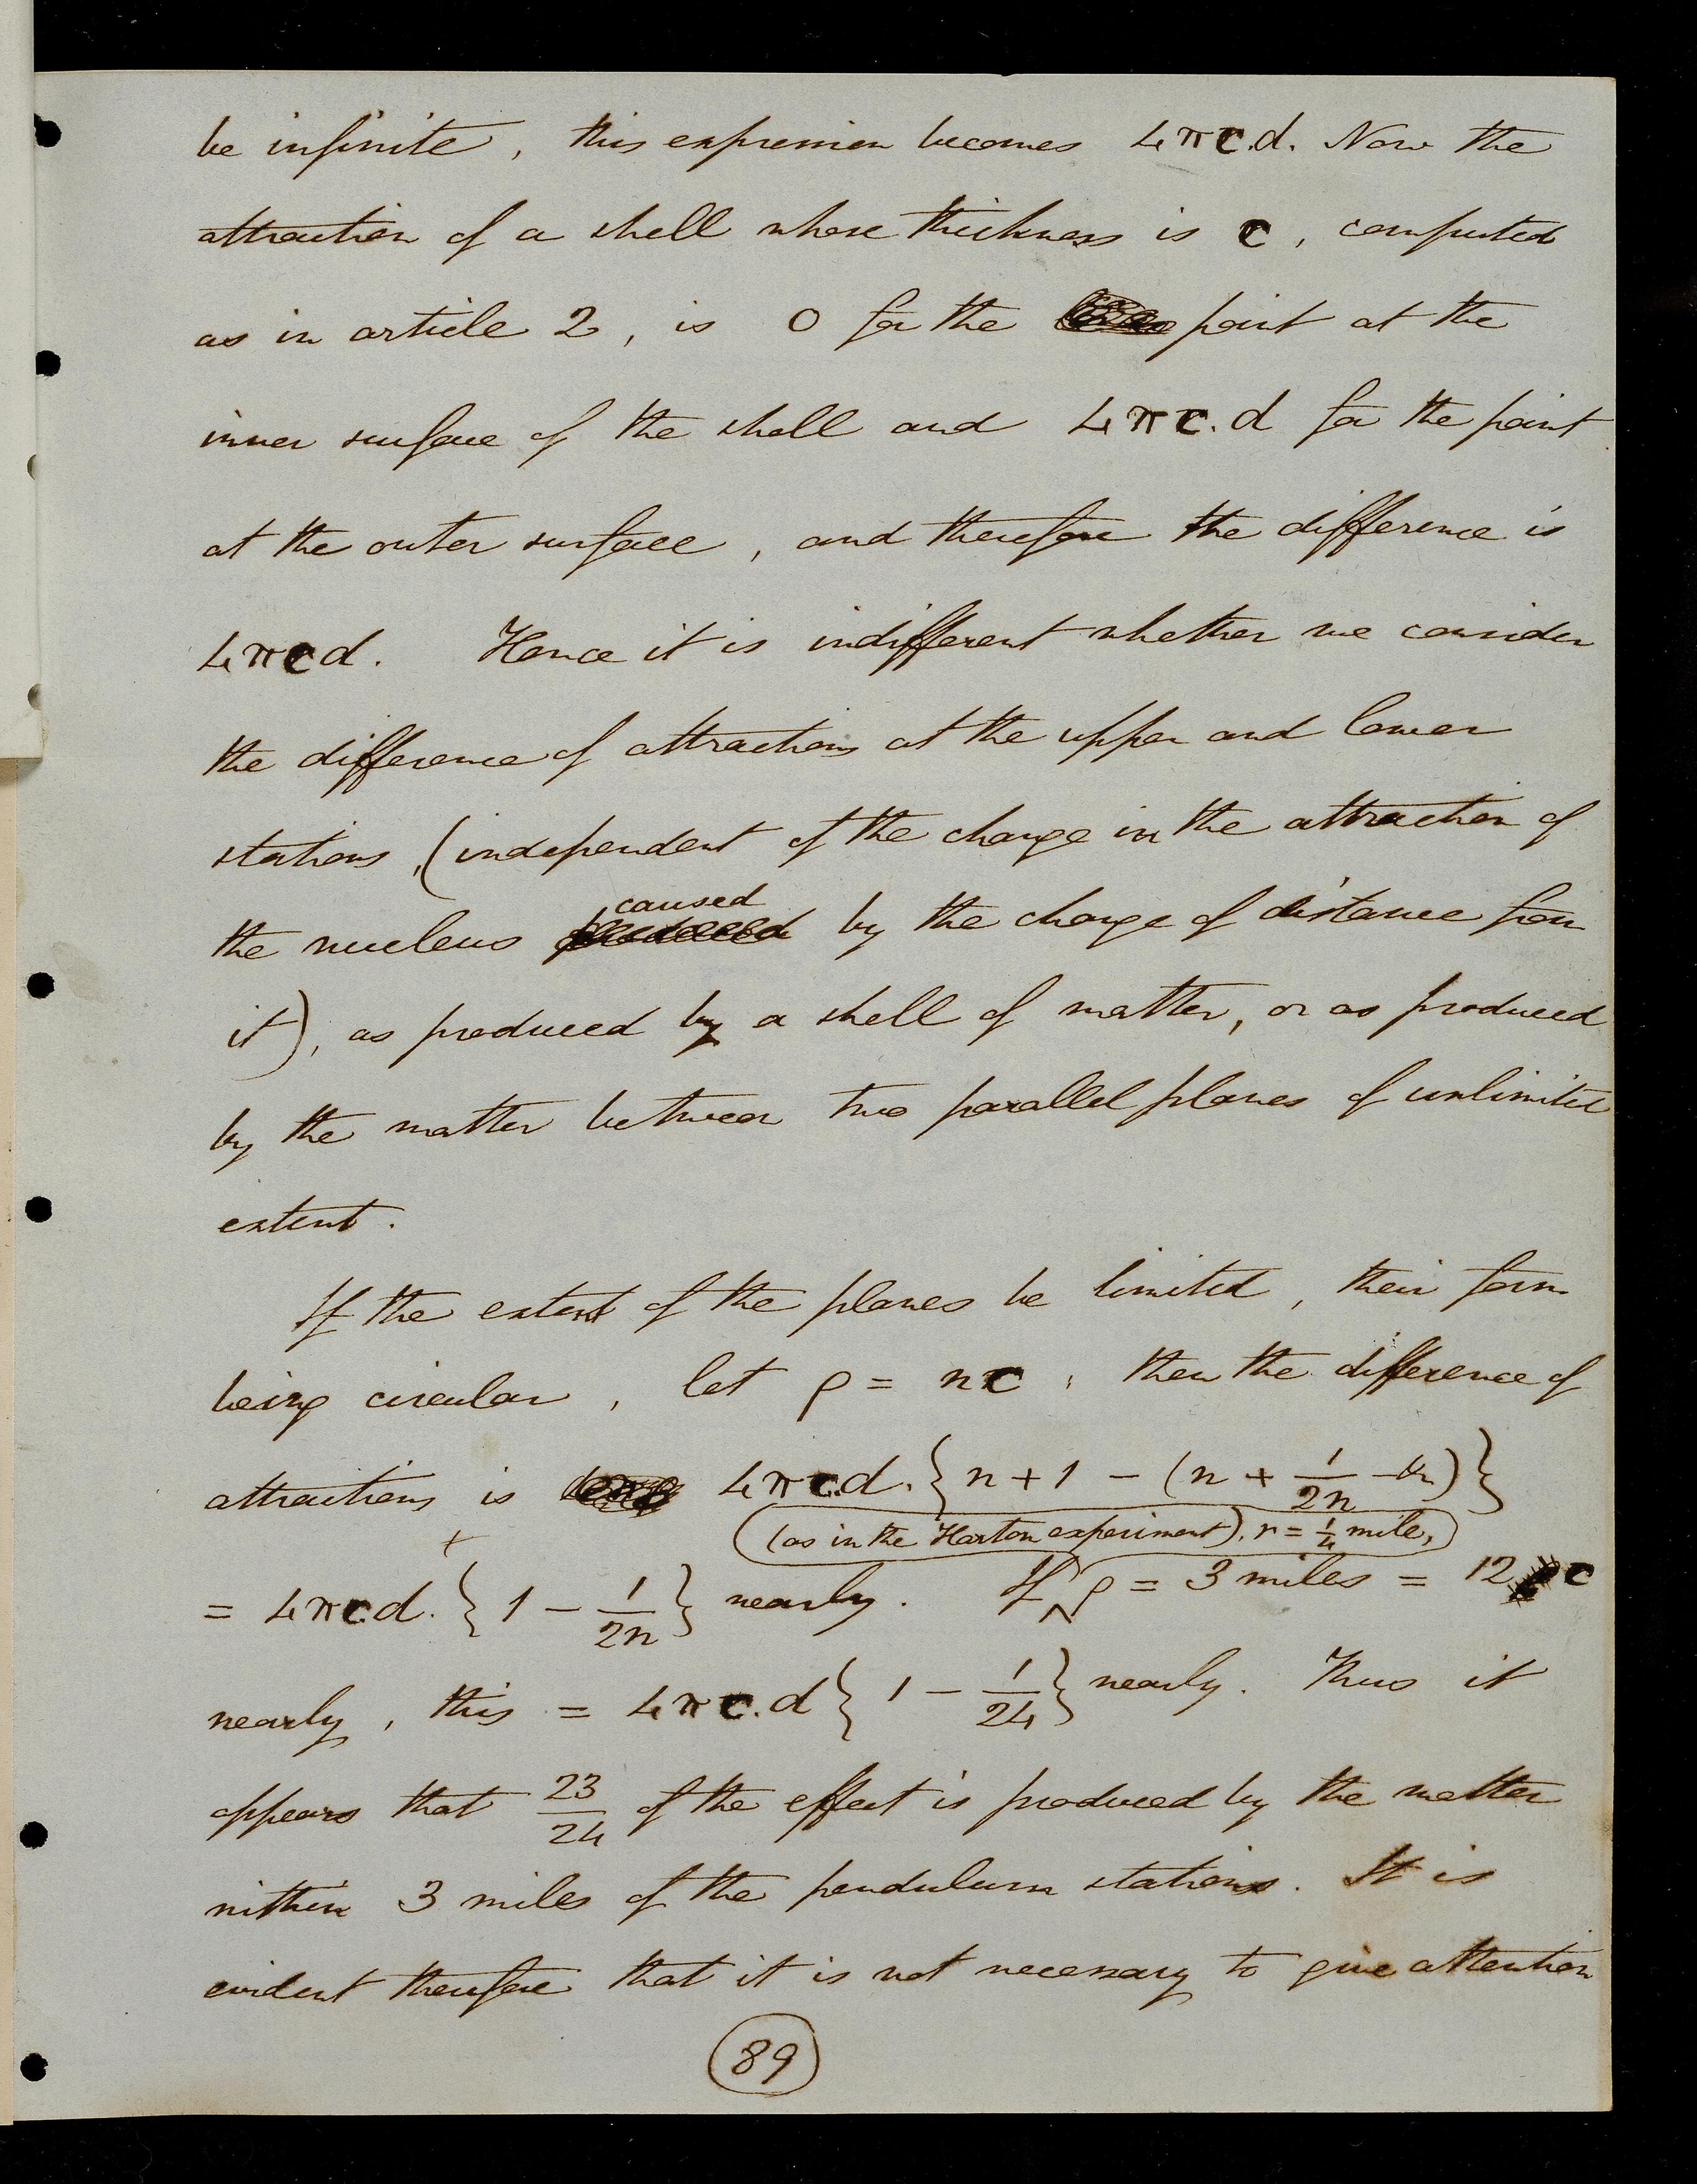 be infinite, this expression becomes 4πc.d. Now the
attraction of a shell whose thickness is c, computed
as in article 2, is 0 for the point at the
inner surface of the shell and 4πc.d for the point
at the outer surface, and therefore the difference is
4πcd. Hence it is indifferent whether we consider
the difference of attractions at the upper and lower
stations, (independent of the change in the attraction of
caused
the nucleus produced by the change of distance from
it), as produced by a shell of matter, or as produced
by the matter between two parallel planes of unlimited
extent.
If the extent of the planes be limited, their form
being circular, let ρ = nc; then the difference of
attractions is 4πc.d.{n+1 - (n + 1/2n)}
(as in the Harton experiment), r = 1/4 mile,
= 4πcd.{1 - 1/2n} nearly. If ρ = 3 miles = 12 c
nearly, this = 4πc.d{1 - 1/24} nearly. Thus it
appears that 23/24 of the effect is produced by the matter
within 3 miles of the pendulum stations. It is
evident therefore that it is not necessary to give attention
89